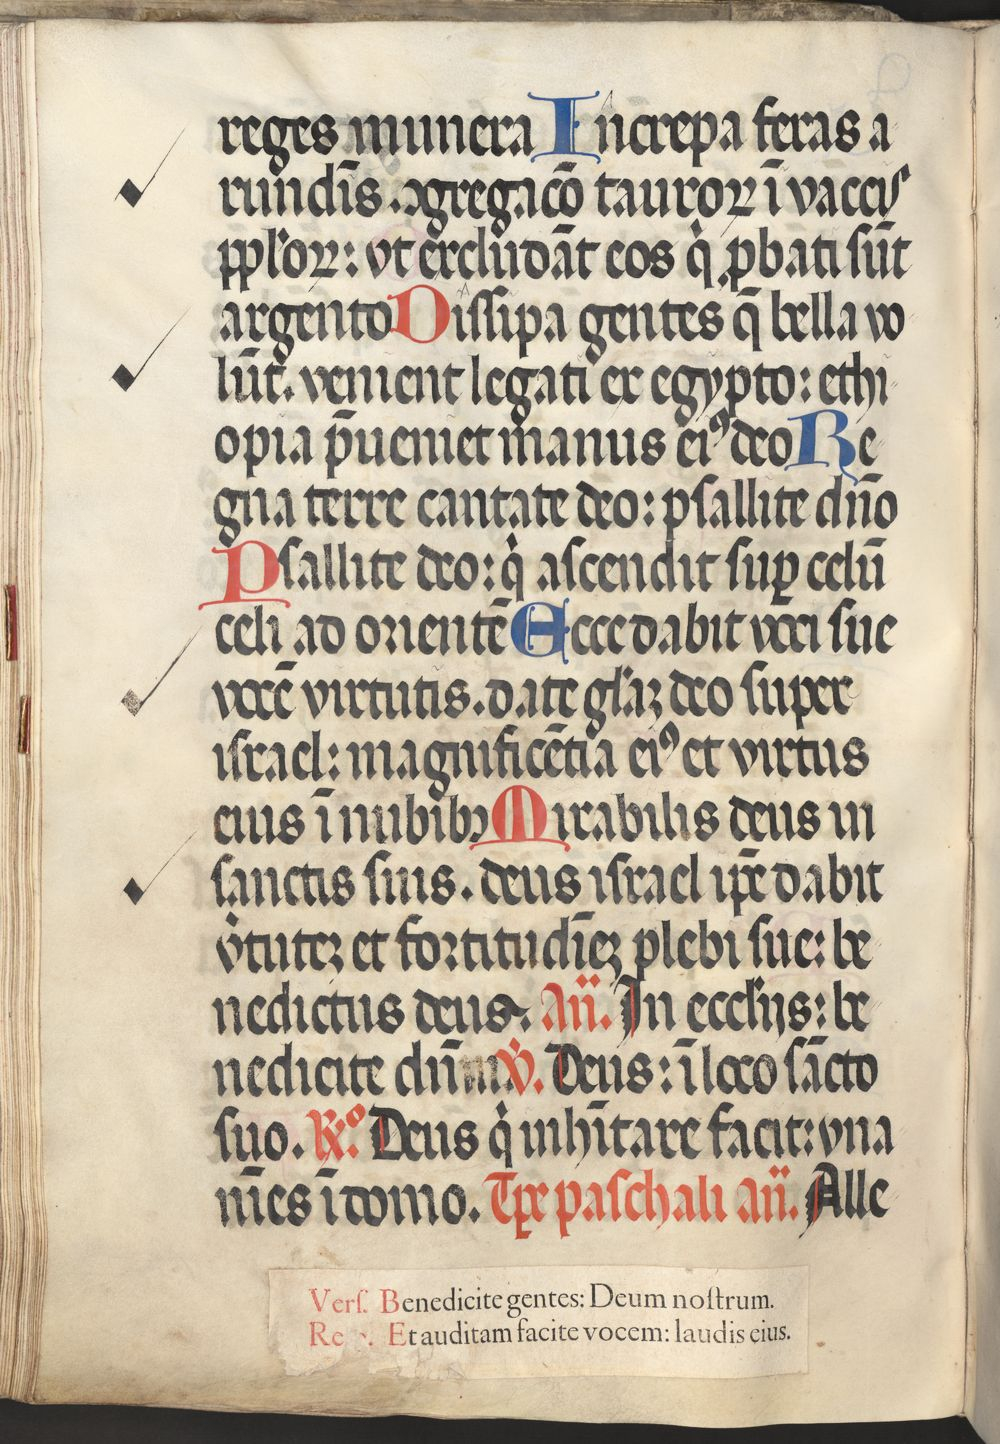 reges munera Increpa feras a
rundīs. ꝯgregacō tauroꝝ ī vaccis
ppl'oꝝ: vt excludāt eos q̇ ꝓbati sūt
argento Dissipa gentes q̄ bella vo
lūt. venient legati ex egypto: ethi
opia p̄ueniet manus eiꝰ deo Re
gna terre cantate deo: psallite dn̄o
Psallite deo: q̇ ascendit suꝑ celū
celi ad orientē Ecce dabit voci sue
vocē virtutis. date gl'aꝫ deo super
israel: magnificētia eiꝰ et virtus
eius ī nubibꝫ Mirabilis deus in
sanctis suis. deus israel ip̄e dabit
v̇tuteꝫ et fortitudīeꝫ plebi sue: be
nedictus deus. An̄. In eccl'ijs: be
nedicite dn̄m ℣. Deus: ī loco sācto
suo. Rꝰ. Deus q̇ inhītare facit: vna
nīes ī domo. Tp̄e paschali an̄. Alle
Vers. Benedicite gentes: Deum nostrum.
Re Et auditam facite vocem: laudis eius.